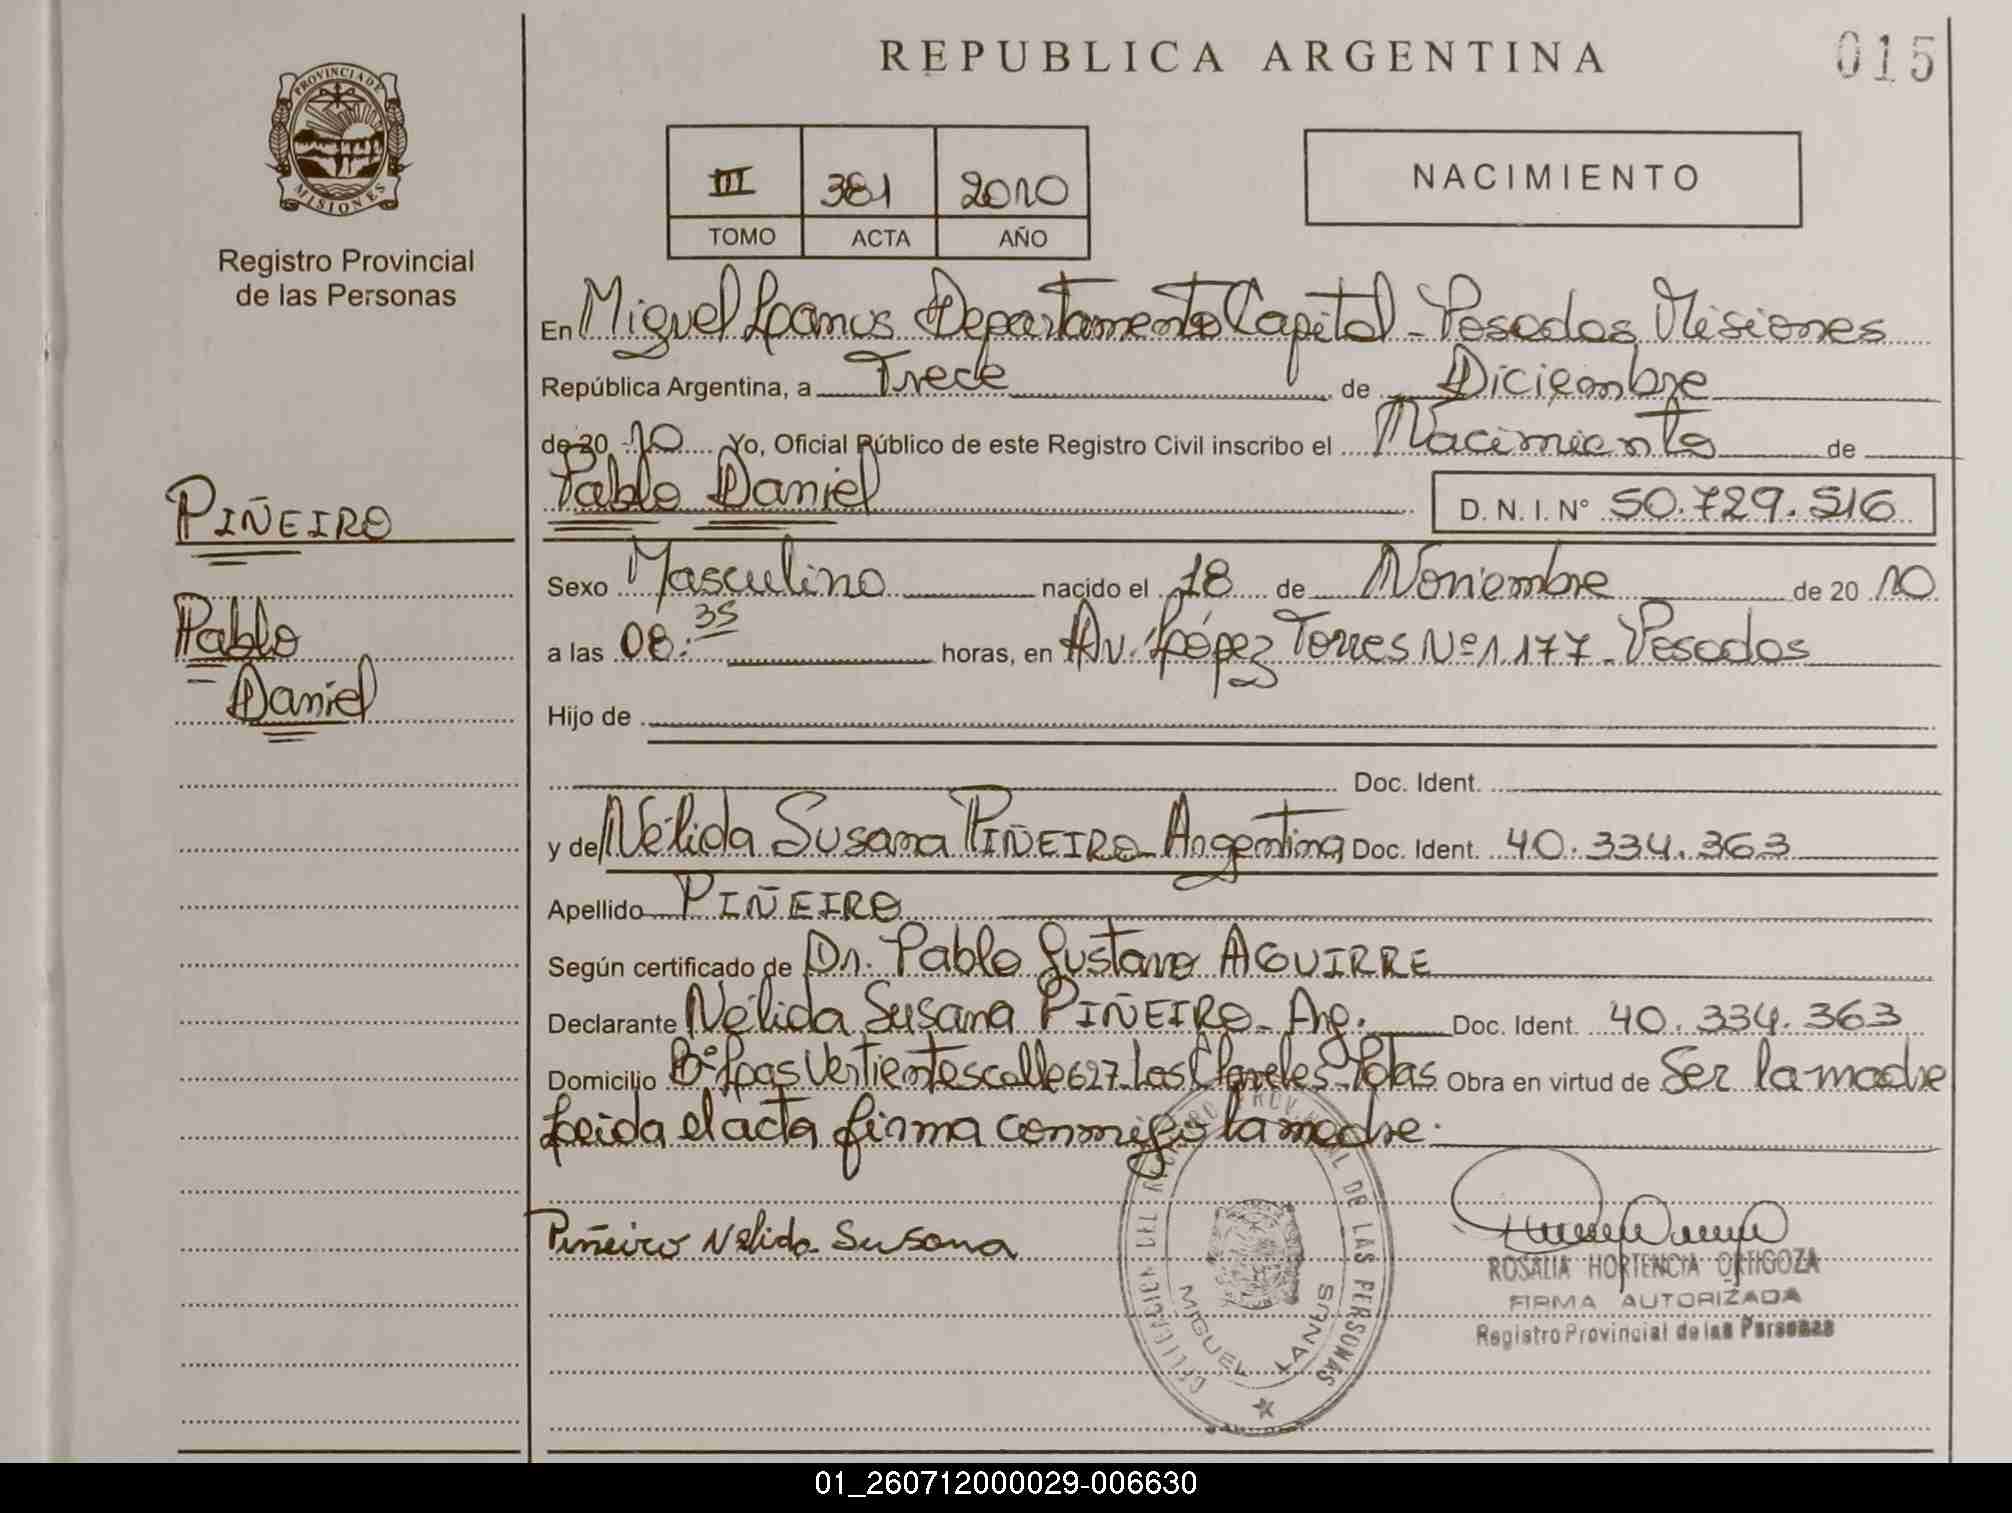 REPUBLICA ARGENTINA
015
PROVINCIA DE
MISIONES
Registro Provincial
de las Personas
III 381 2010
TOMO ACTA AÑO
NACIMIENTO
En Miguel Lanus Departamento Capital - Posadas Misiones
República Argentina, a Trece de Diciembre
de 20 10 Yo, Oficial Público de este Registro Civil inscribo el Nacimiento de
Pablo Daniel D. N. I. Nº 50.729.516
PIÑEIRO
Pablo
Daniel
Sexo Masculino nacido el 18 de Noviembre de 20 10
a las 08:35 horas, en Av. López Torres Nº 1.177 - Posadas
Hijo de
Doc. Ident.
y de Nélida Susana PIÑEIRO - Argentina Doc. Ident. 40.334.363
Apellido PIÑEIRO
Según certificado de Dr. Pablo Gustavo AGUIRRE
Declarante Nélida Susana PIÑEIRO - Arg. Doc. Ident. 40.334.363
Domicilio Bº Las Vertientes calle 627 - Los Claveles - Pdas Obra en virtud de Ser la madre
Leida el acta firma conmigo la madre.
Piñeiro Nelida Susana
DEL REGISTRO PROVINCIAL DE LAS PERSONAS
MIGUEL LANUS
ROSALIA HORTENCIA ORTIGOZA
FIRMA AUTORIZADA
Registro Provincial de las Personas
01_260712000029-006630